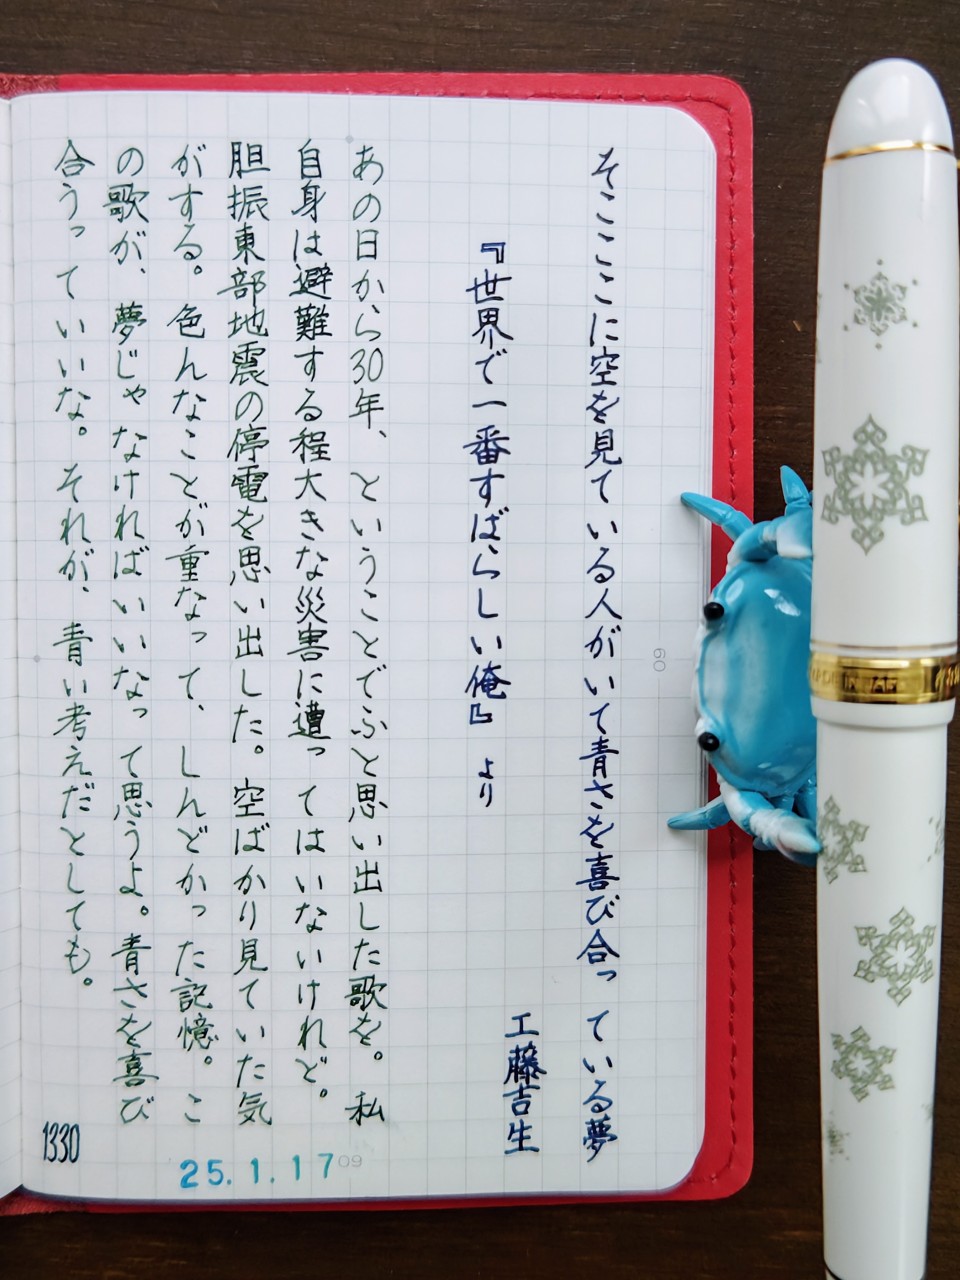 そこここに空を見ている人がいて青さを喜び合っている夢
工藤吉生
『世界で一番すばらしい俺』より
あの日から30年、ということでふと思い出した歌を。私
自身は避難する程大きな災害に遭ってはいないけれど。
胆振東部地震の停電を思い出した。空ばかり見ていた気
がする。色んなことが重なって、しんどかった記憶。こ
の歌が、夢じゃなければいいなって思うよ。青さを喜び
合うっていいな。それが、青い考えだとしても。
1330
25.1.17
60
09